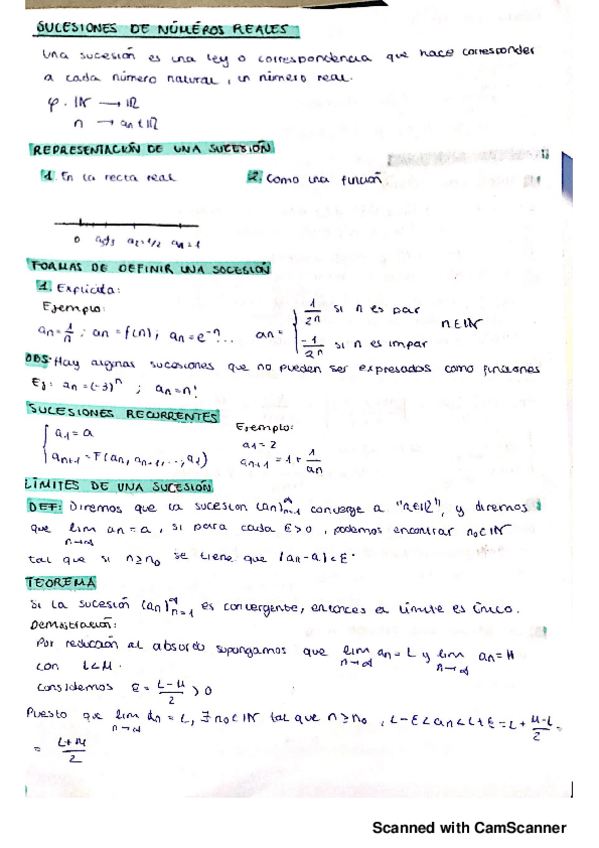 SUCESIONES DE NÚMEROS REALES
Una sucesión es una ley o correspondencia que hace corresponder
a cada número natural, un número real.
φ. ℕ → ℝ
n → an ∈ ℝ
REPRESENTACIÓN DE UNA SUCESIÓN
1. En la recta real 2. Como una función
0 a2=1/2 a1=1
FORMAS DE DEFINIR UNA SUCESIÓN
1. Explícita:
Ejemplo:
an = 1/n ; an = f(n) ; an = e^-n ... an = { 1/2n si n es par n∈ℕ
-1/2n si n es impar
OBS: Hay algunas sucesiones que no pueden ser expresadas como funciones
Ej: an = (-3)^n ; an = n!
SUCESIONES RECURRENTES
{ a1 = a
an+1 = F(an, an-1, ..., a1)
Ejemplo:
a1 = 2
an+1 = 1 + 1/an
LÍMITES DE UNA SUCESIÓN
DEF: Diremos que la sucesión (an)∞n=1 converge a "a∈ℝ", y diremos
que lim n→∞ an = a, si para cada ε>0, podemos encontrar n0∈ℕ
tal que si n≥n0 se tiene que |an-a|<ε.
TEOREMA
Si la sucesión (an)∞n=1 es convergente, entonces el límite es único.
Demostración:
Por reducción al absurdo supongamos que lim n→∞ an = L y lim n→∞ an = M
con L<M.
Considemos ε = L-M/2 > 0
Puesto que lim n→∞ an = L, ∃ n0∈ℕ tal que n≥n0, L-ε<an<L+ε = L + M-L/2 =
= L+M/2
Scanned with CamScanner